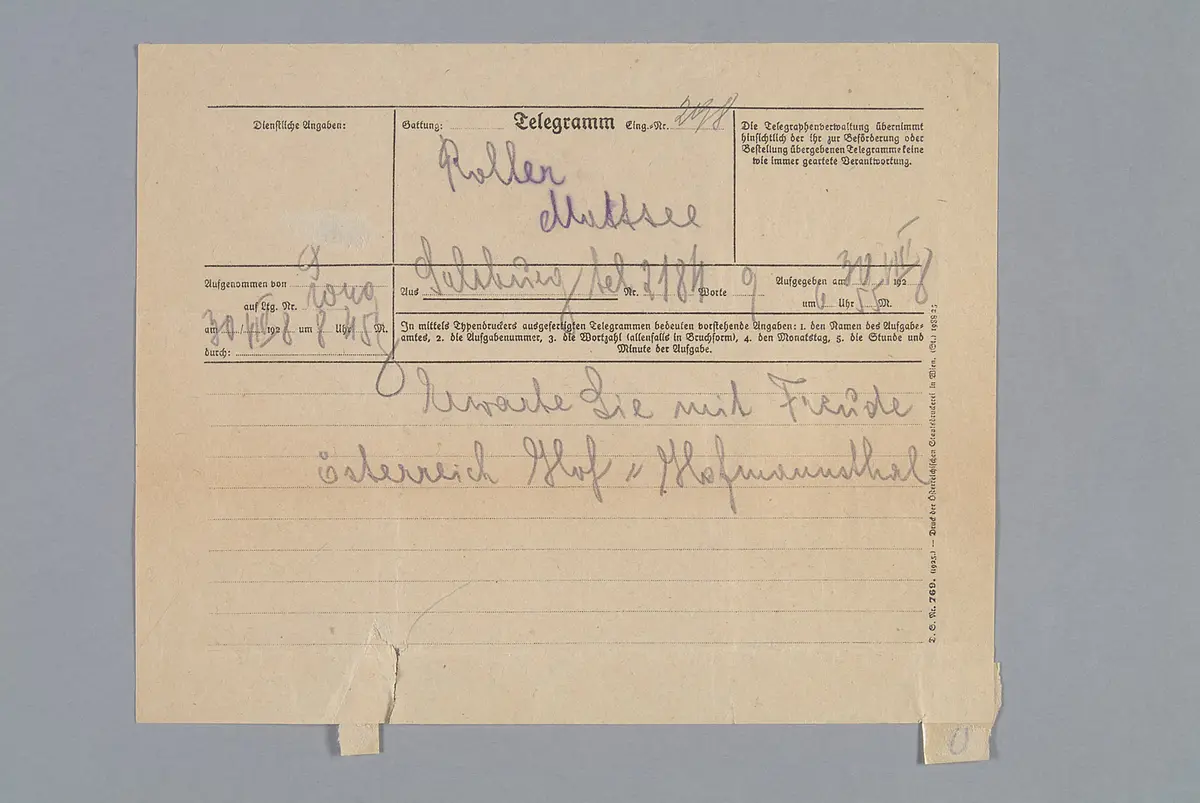 Dienstliche Angaben:
Gattung: Telegramm Eing.-Nr. 2198
Die Telegraphenverwaltung übernimmt
hinsichtlich der ihr zur Beförderung oder
Bestellung übergebenen Telegramme keine
wie immer geartete Verantwortung.
Roller
Mattsee
Aufgenommen von
auf Ltg. Nr.
am 30/VII 1928 um 8 Uhr 45 M.
durch:
Aus Salzburg tel Nr. 3184 Worte 9 Aufgegeben am 30/VII 1928
um 6 Uhr 55 M.
In mittels Typendruckers ausgefertigten Telegrammen bedeuten vorstehende Angaben: 1. den Namen des Aufgabe-
amtes, 2. die Aufgabenummer, 3. die Wortzahl (allenfalls in Bruchform), 4. den Monatstag, 5. die Stunde und
Minute der Aufgabe.
Erwarte Sie mit Freude
österreich Hof = Hofmannsthal
D. S. Nr. 769. (1925.) — Druck der Österreichischen Staatsdruckerei in Wien. (St.) 1938 25
0